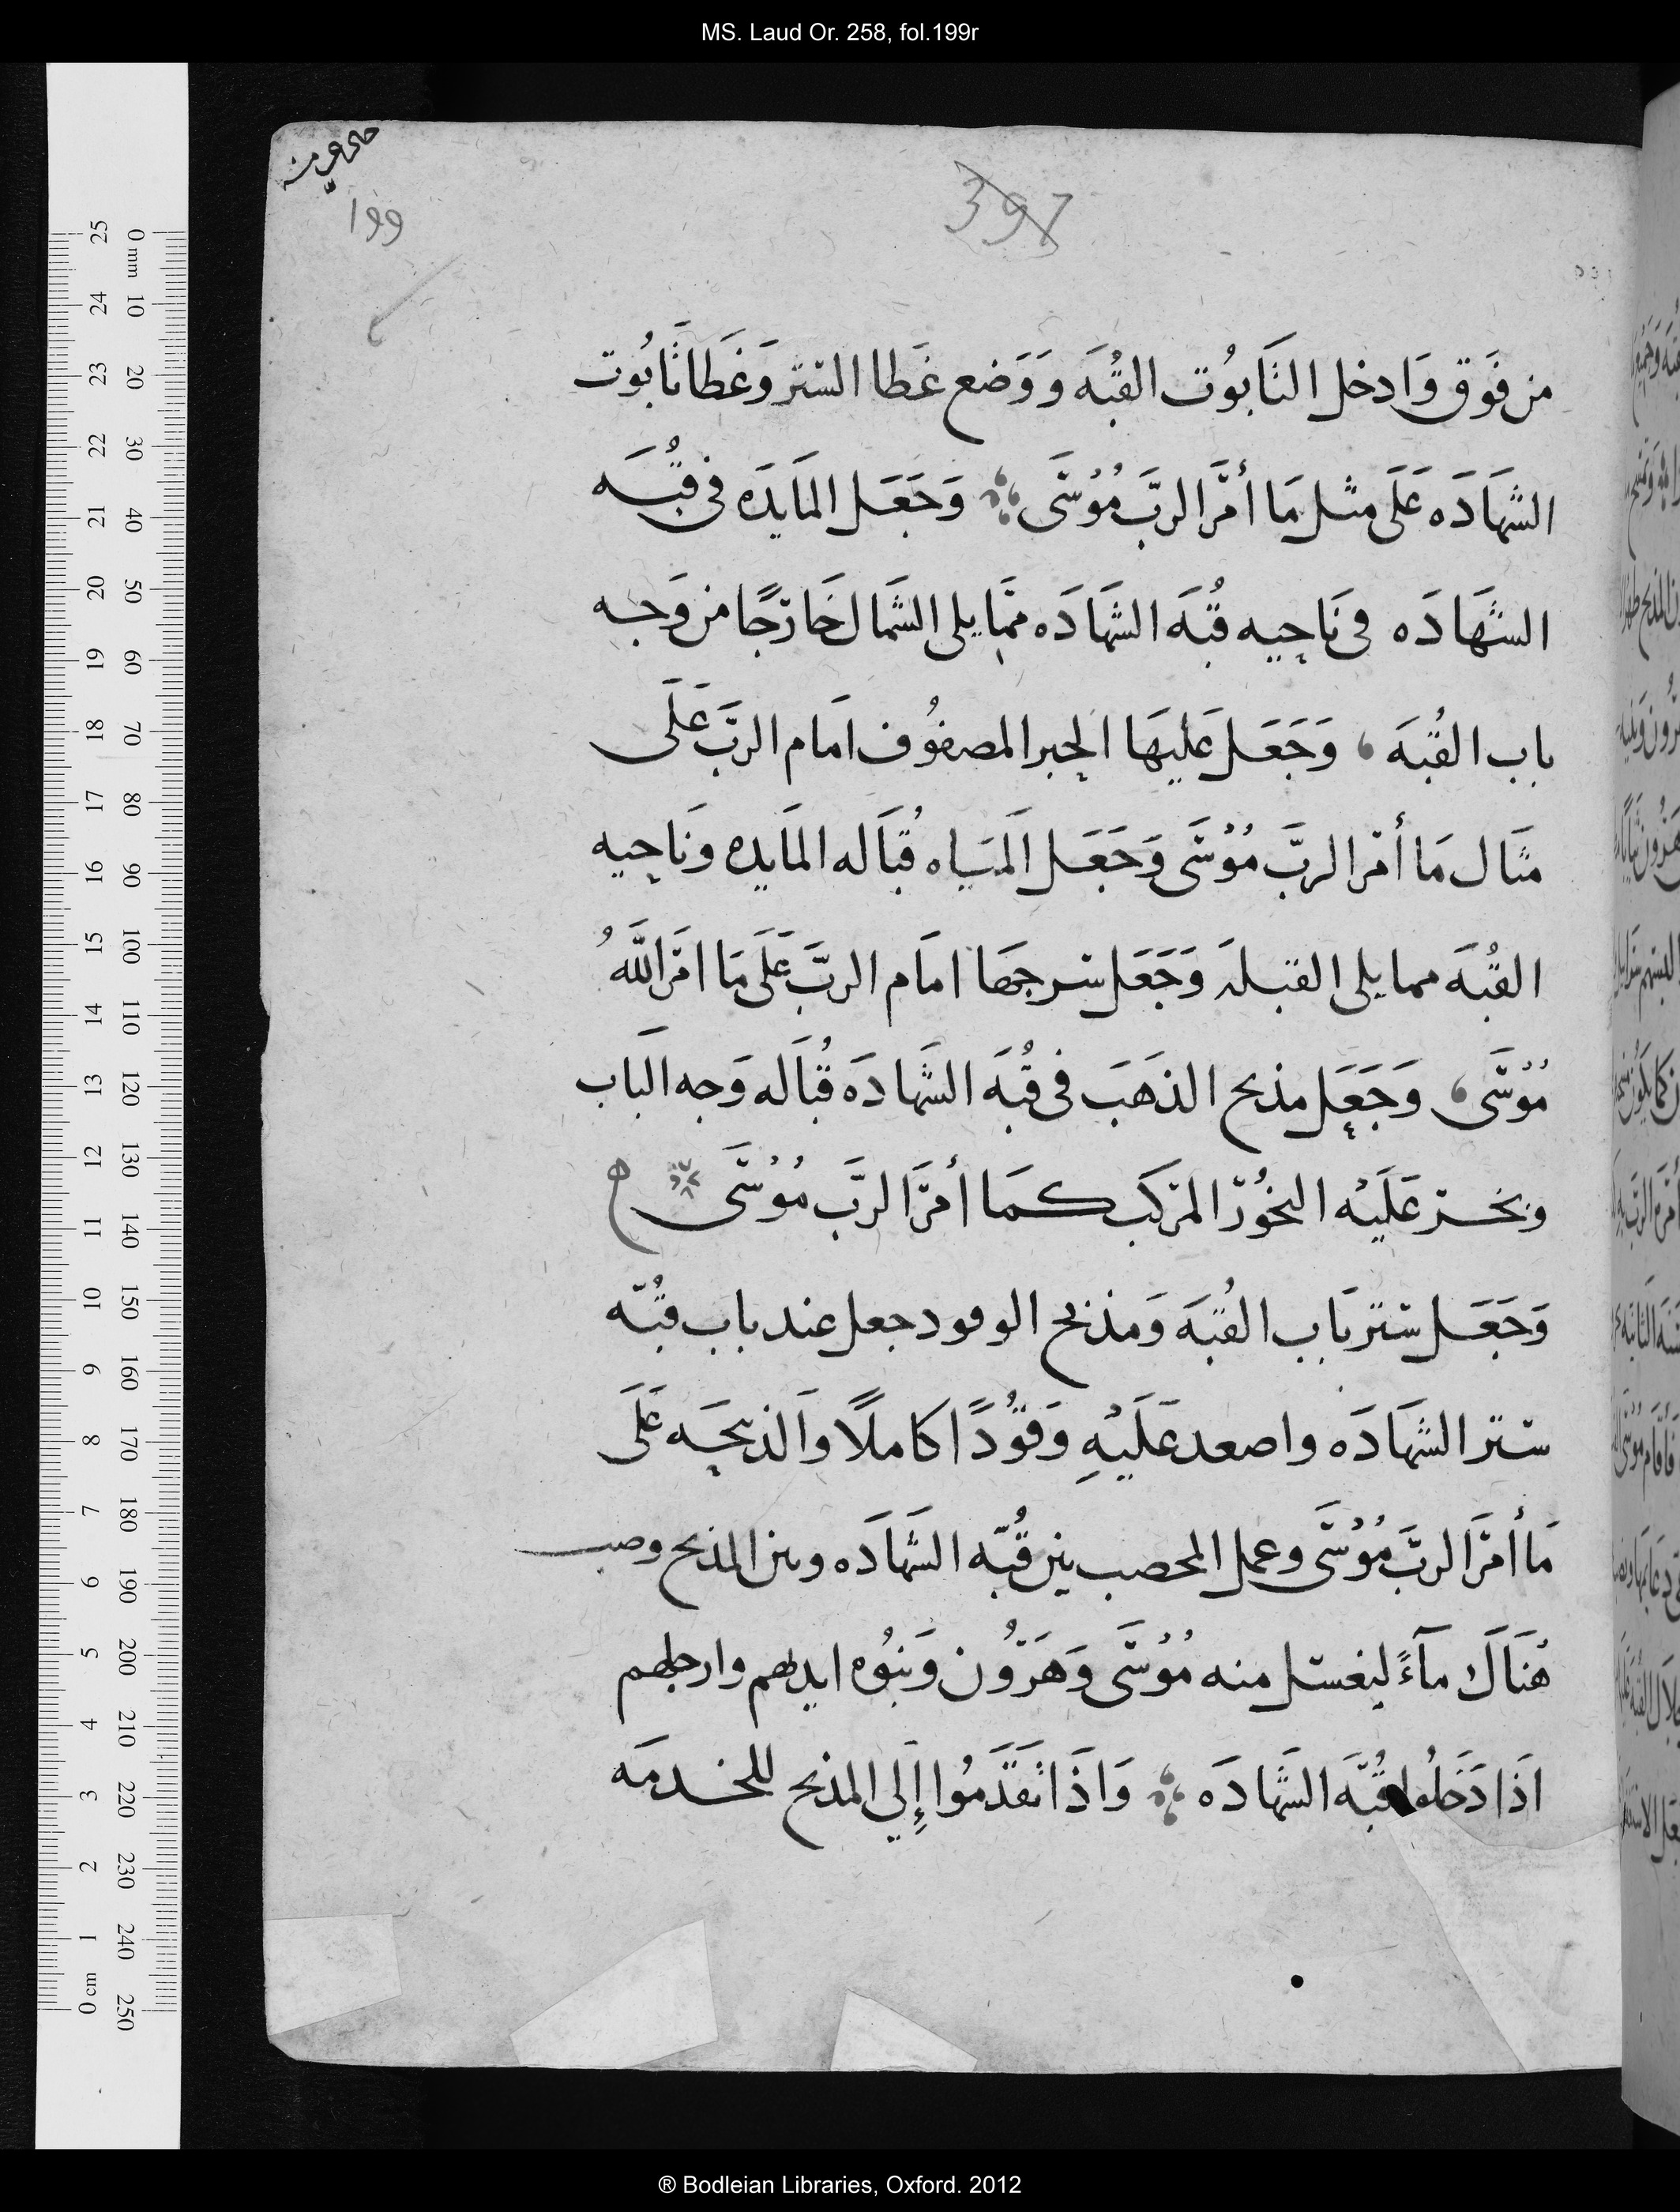 MS. Laud Or. 258, fol.199r
397
199
من فَوق وَادخل التَابوُت القُبَه وَوَضع غَطا الستر وَغَطَا تَابُوت
الشهَادَه عَلَى مثل مَا أمَر الربَّ مُوُسَى وَجَعَل المَايدَه فى قُبَه
الشهَادَه فى نَاحيه قُبَه الشهَادَه ممَّا يلى الشمَال خَارجًا من وَجه
باب القُبَه وَجَعَل عَليهَا الخبز المصفوُف امَام الربَّ عَلَى
مثَال مَا أمَر الربَّ مُوُسَى وَجَعَل المَياه قُبَاله المَايده وَنَاحيه
القُبَه مما يلى القبله وَجَعَل سرجهَا امَام الربَّ عَلَى مَا امَر اللَّهُ
مُوُسَى وَجَعَل مذبح الذهَبَ فى قُبَه الشهَادَه قُبَاله وَجه البَاب
وبخر عَلَيْه البخُوُر المركَب كمَا أمَرَ الربَّ مُوُسَى
وَجَعَل ستر بَاب القُبَه وَمذبح الوقود جعل عند باب قبُّه
ستر الشهَادَه واصعد عَلَيْهِ وَقوُدًا كاملًا وَالذبيحَه عَلَى
مَا أمَرَ الربَّ مُوُسَى وعمل المخصب بين قُبَّه الشهَادَه وبين المذبح وصب
هُنَاَك مآءً ليغسل منه مُوُسَى وَهَرُون وَبَنُوه ايديهم وارجلهم
اذَا دَخَلُوا قُبَّه الشهَادَه وَاذَا تقَدَّمُوا إِلي المذبح للخدمَه
25 24 23 22 21 20 19 18 17 16 15 14 13 12 11 10 9 8 7 6 5 4 3 2 1 0 cm
0 mm 10 20 30 40 50 60 70 80 90 100 110 120 130 140 150 160 170 180 190 200 210 220 230 240 250
® Bodleian Libraries, Oxford. 2012